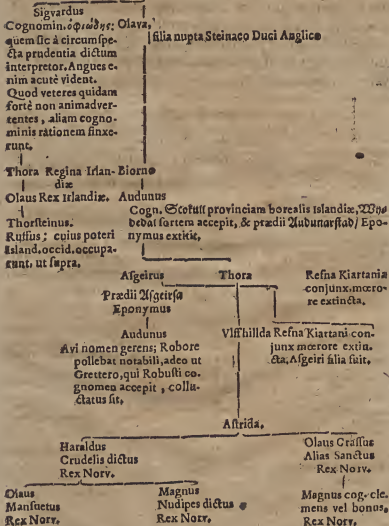 Sigvardus
Cognomin. ὀφιώδης: Olava,
quem sic à circumspe-
cta prudentia dictum
interpretor. Angues e-
nim acutè vident.
Quod veteres quidam
fortè non animadver-
tentes, aliam cogno-
minis rationem finxe-
runt.
filia nupta Steinaco Duci Anglico
Thora Regina Irlan-
diæ
Biorno
Olaus Rex Irlandiæ.
Thorsteinus.
Ruffus; cuius poteri
Island. occid. occupa-
runt. ut supra.
Audunus
Cogn. Skokull provinciam borealis Islandiæ,
dedal sortem accepit, & prædii Audunarstad/ Epo-
nymus extitit,
Asgeirus
Prædii Asgeirsa
Eponymus
Thora
Refna Kiartania
conjunx. mœro-
re extincta.
Audunus
Avi nomen gerens; Robore
pollebat notabili, adeo ut
Grettero, qui Robusti co-
gnomen accepit, collu-
ctatus sit,
Vlfhillda
Refna Kiartani con-
junx mœrore extin-
cta, Asgeiri filia fuit.
Astrida.
Haraldus
Crudelis dictus
Rex Norv.
Olaus Crassus
Alias Sanctus
Rex Norv.
Olaus
Mansuetus
Rex Norv.
Magnus
Nudipes dictus
Rex Norv.
Magnus cog. cle-
mens vel bonus.
Rex Norv.